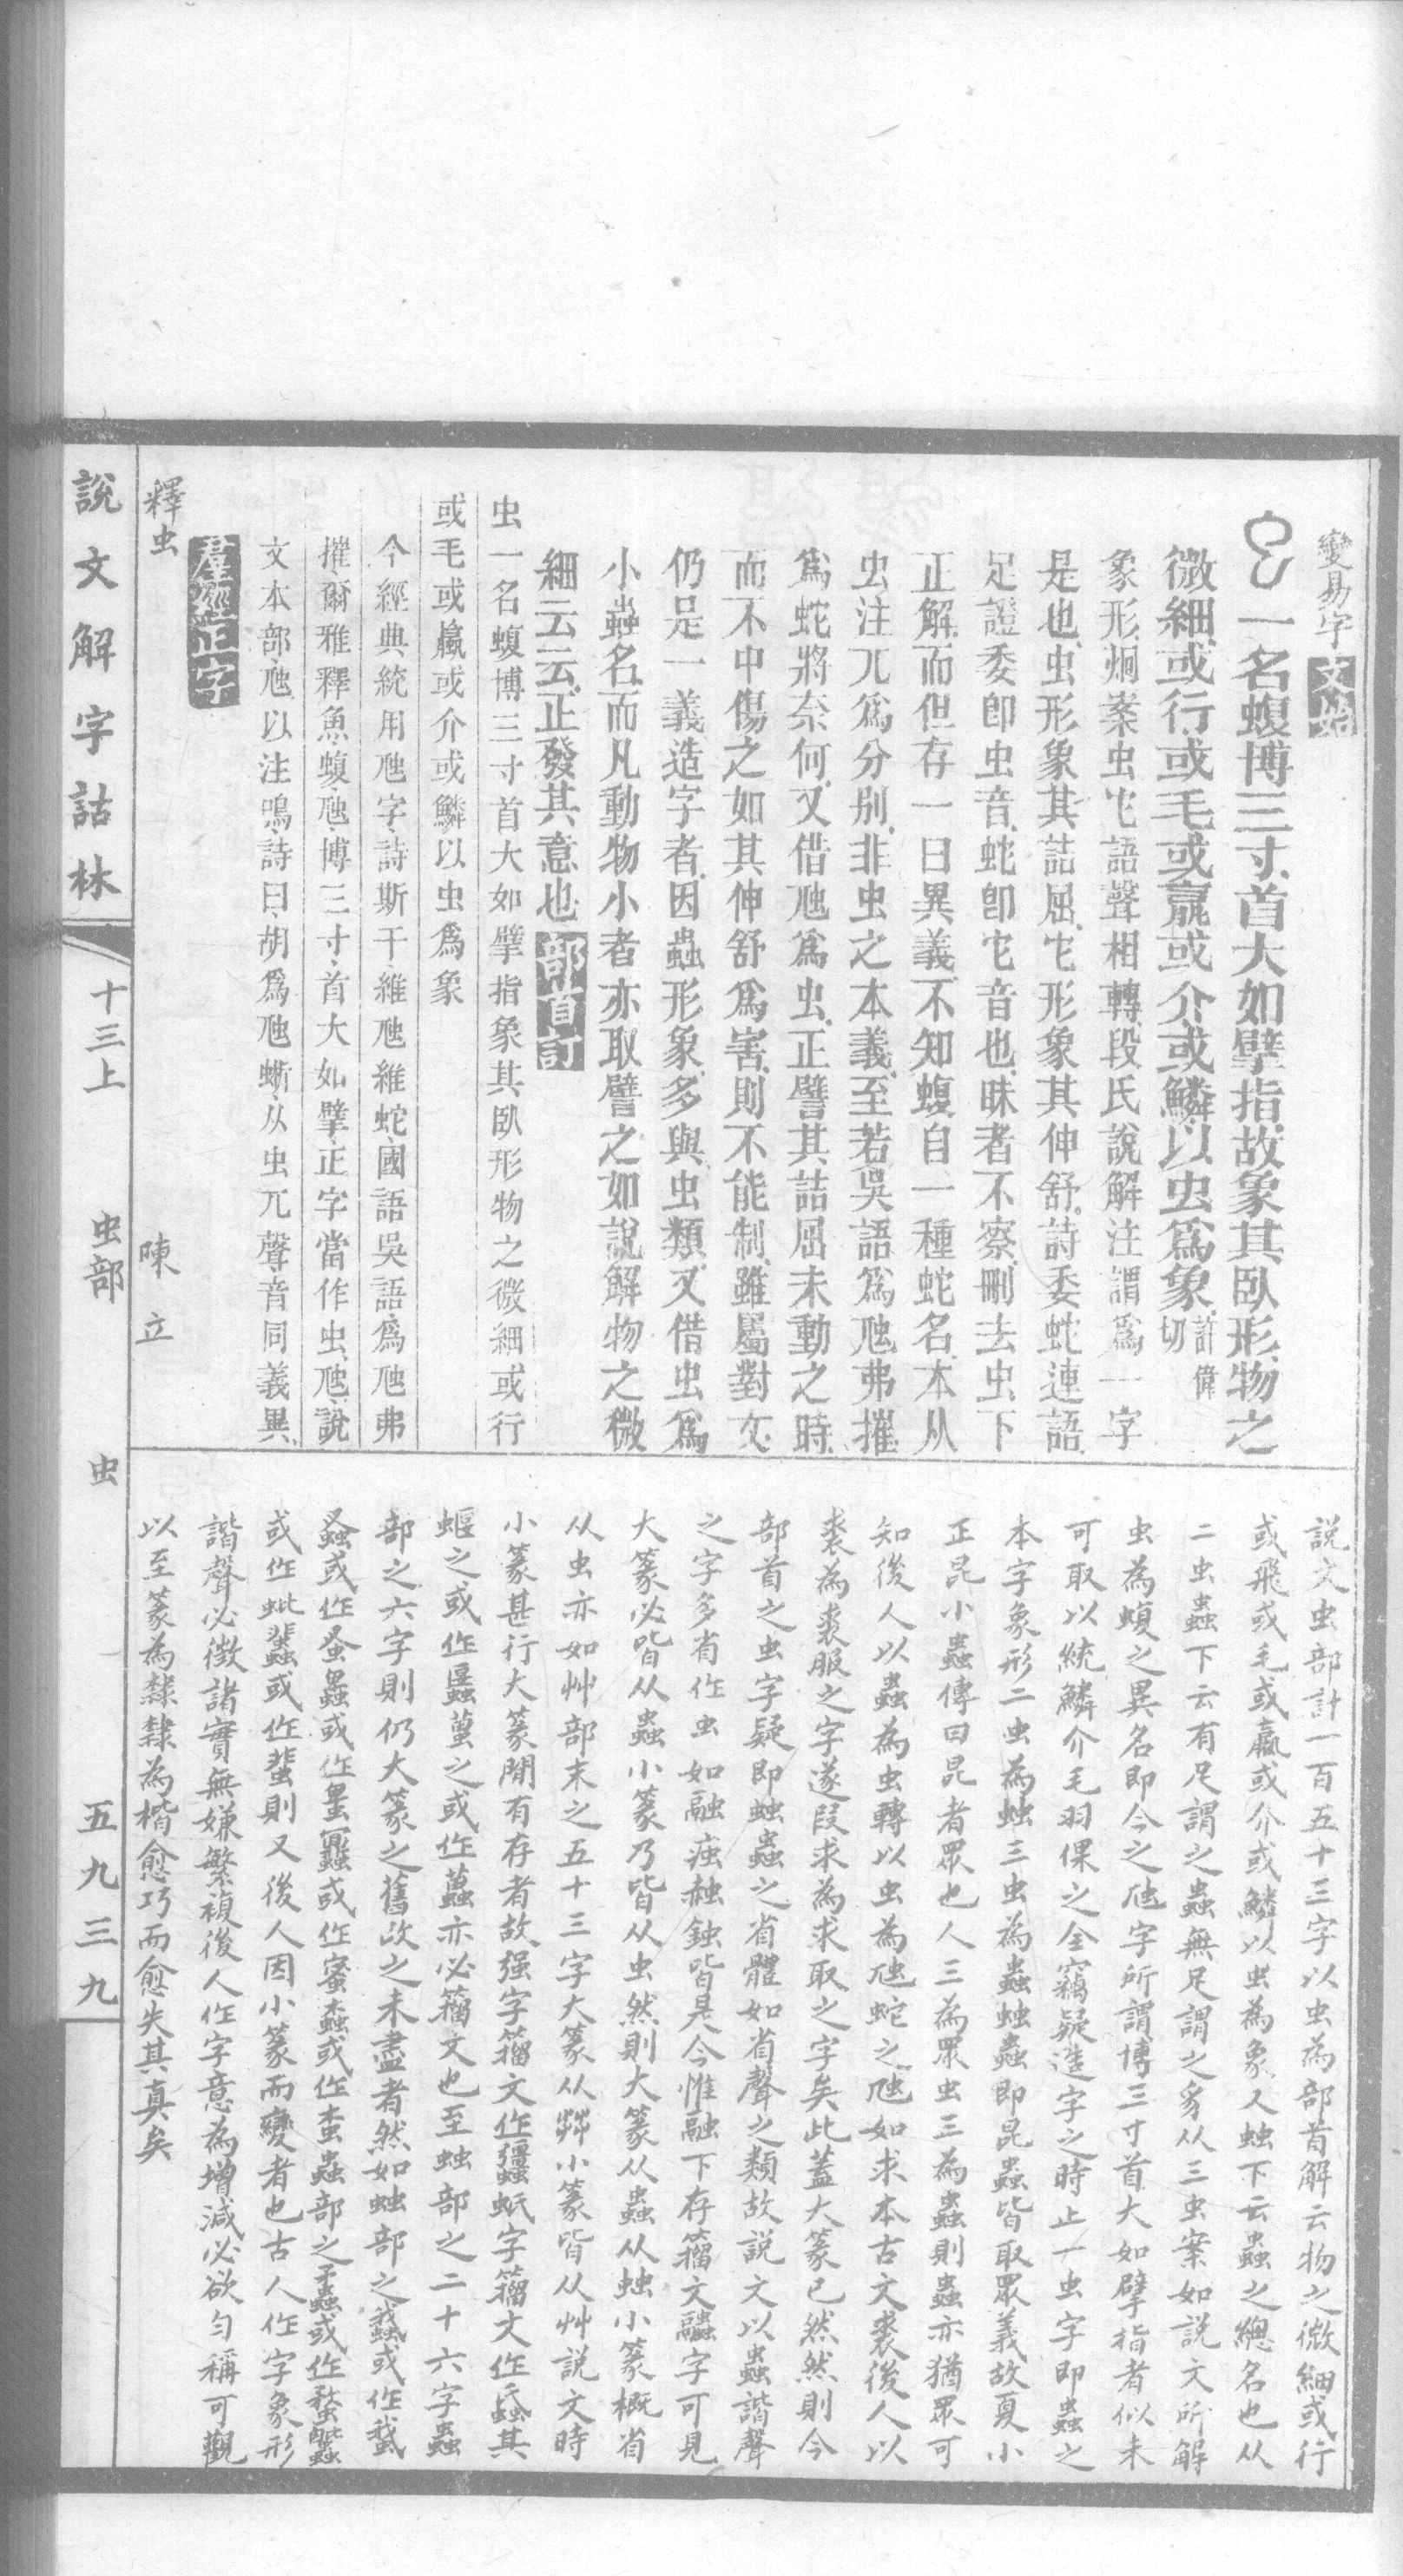 變易字文始
一名蝮博三寸首大如擘指故象其臥形物之
微細或行或毛或蠃或介或鱗以虫爲象許偉切
象形炯案虫它語聲相轉段氏說解注謂爲一字
是也虫形象其詰屈它形象其伸舒詩委蛇連語
足證委卽虫音蛇卽它音也昧者不察刪去虫下
正解而但存一曰異義不知蝮自一種蛇名本从
虫注兀爲分别非虫之本義至若吳語爲虺弗摧
爲蛇將奈何又借虺爲虫正譬其詰屈未動之時
而不中傷之如其伸舒爲害則不能制雖屬對文
仍是一義造字者因蟲形象多與虫類又借虫爲
小蟲名而凡動物小者亦取譬之如說解物之微
細云云正發其意也部首訂
虫一名蝮博三寸首大如擘指象其臥形物之微細或行
或毛或蠃或介或鱗以虫爲象
今經典統用虺字詩斯干維虺維蛇國語吳語爲虺弗
摧爾雅釋魚蝮虺博三寸首大如擘正字當作虫虺說
文本部虺以注鳴詩曰胡爲虺蜥从虫兀聲音同義異
羣經正字
釋虫 陳立
說文虫部計一百五十三字以虫為部首解云物之微細或行
或飛或毛或蠃或介或鱗以虫為象又䖵下云蟲之總名也从
二虫蟲下云有足謂之蟲無足謂之豸从三虫案如說文所解
虫為蝮之異名即今之虺字所謂博三寸首大如擘指者似未
可取以統鱗介毛羽倮之全竊疑造字之時止一虫字即蟲之
本字象形二虫為䖵三虫為蟲䖵蟲即昆蟲皆取眾義故夏小
正昆小蟲傳曰昆者眾也人三為眾虫三為蟲則蟲亦猶眾可
知後人以蟲為虫轉以虫為虺蛇之虺如求本古文裘後人以
裘為裘服之字遂叚求為求取之字矣此蓋大篆已然然則今
部首之虫字疑即䖵蟲之省體如省聲之類故說文以蟲諧聲
之字多省作虫如融痋赨鉵皆是今惟融下存籀文融字可見
大篆必皆从蟲小篆乃皆从虫然則大篆从蟲从䖵小篆概省
从虫亦如艸部末之五十三字大篆从茻小篆皆从艸說文時
小篆甚行大篆閒有存者故强字籀文作䖵蚳字籀文作其
蝘之或作䗷之或作亦必籀文也至䖵部之二十六字蟲
部之六字則仍大篆之舊改之未盡者然如䖵部之或作
蝨或作蚤或作或作蜜或作蟲部之蟊或作蝥
或作蚍蜚或作蜚則又後人因小篆而變者也古人作字象形
諧聲必徵諸實無嫌繁複後人作字意為增減必欲勻稱可觀
以至篆為隸隸為楷愈巧而愈失其真矣
說文解字詁林 十三上 虫部 虫 五九三九